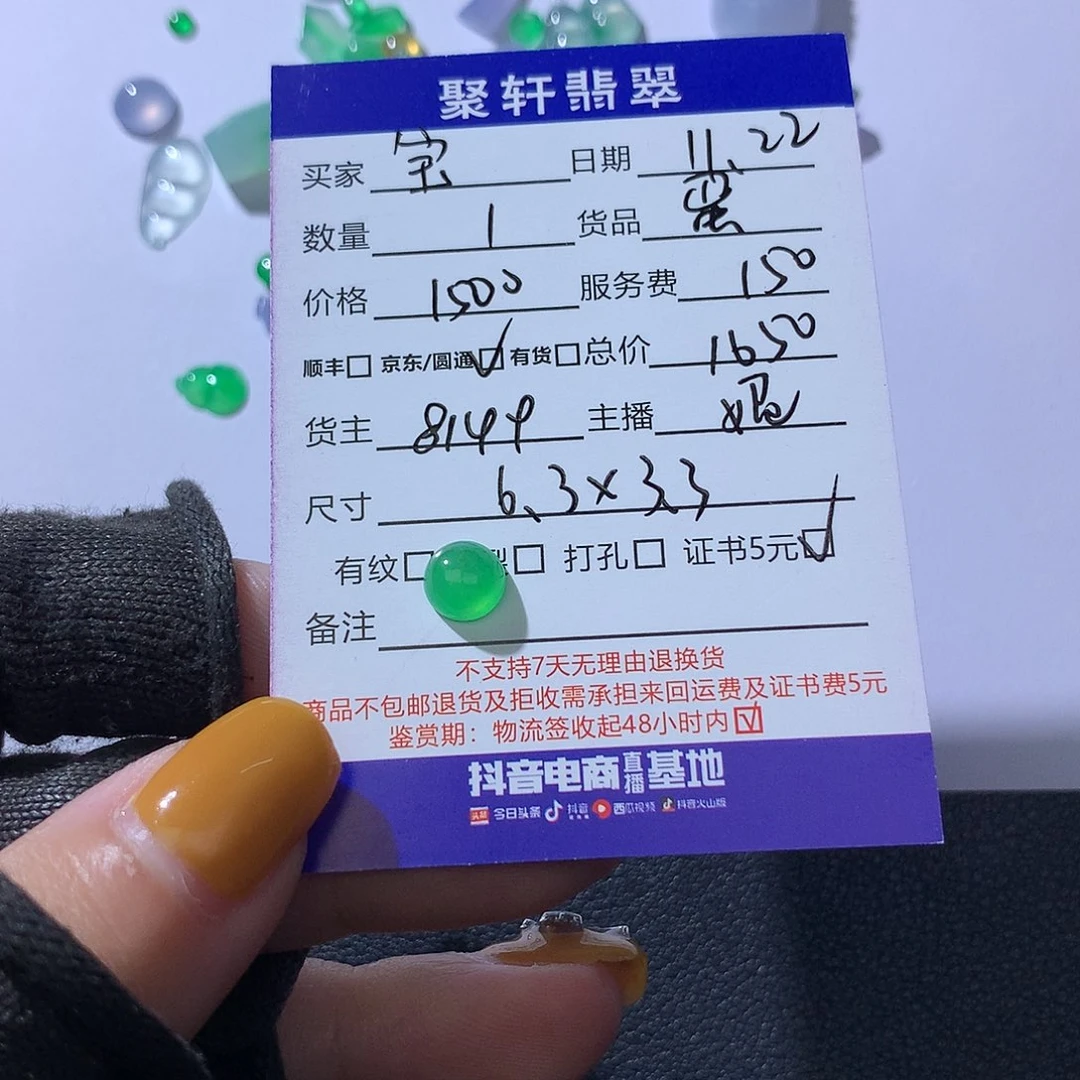 聚轩翡翠
买家 宝 日期 11.22
数量 1 货品
价格 1500 服务费 150
顺丰□ 京东/圆通☑ 有货□ 总价 1650
货主 8149 主播
尺寸 6.3×3.3
有纹□ □ 打孔□ 证书5元☑
备注
不支持7天无理由退换货
商品不包邮退货及拒收需承担来回运费及证书费5元
鉴赏期：物流签收起48小时内☑
抖音电商直播基地
头条 今日头条 抖音 西瓜视频 抖音火山版